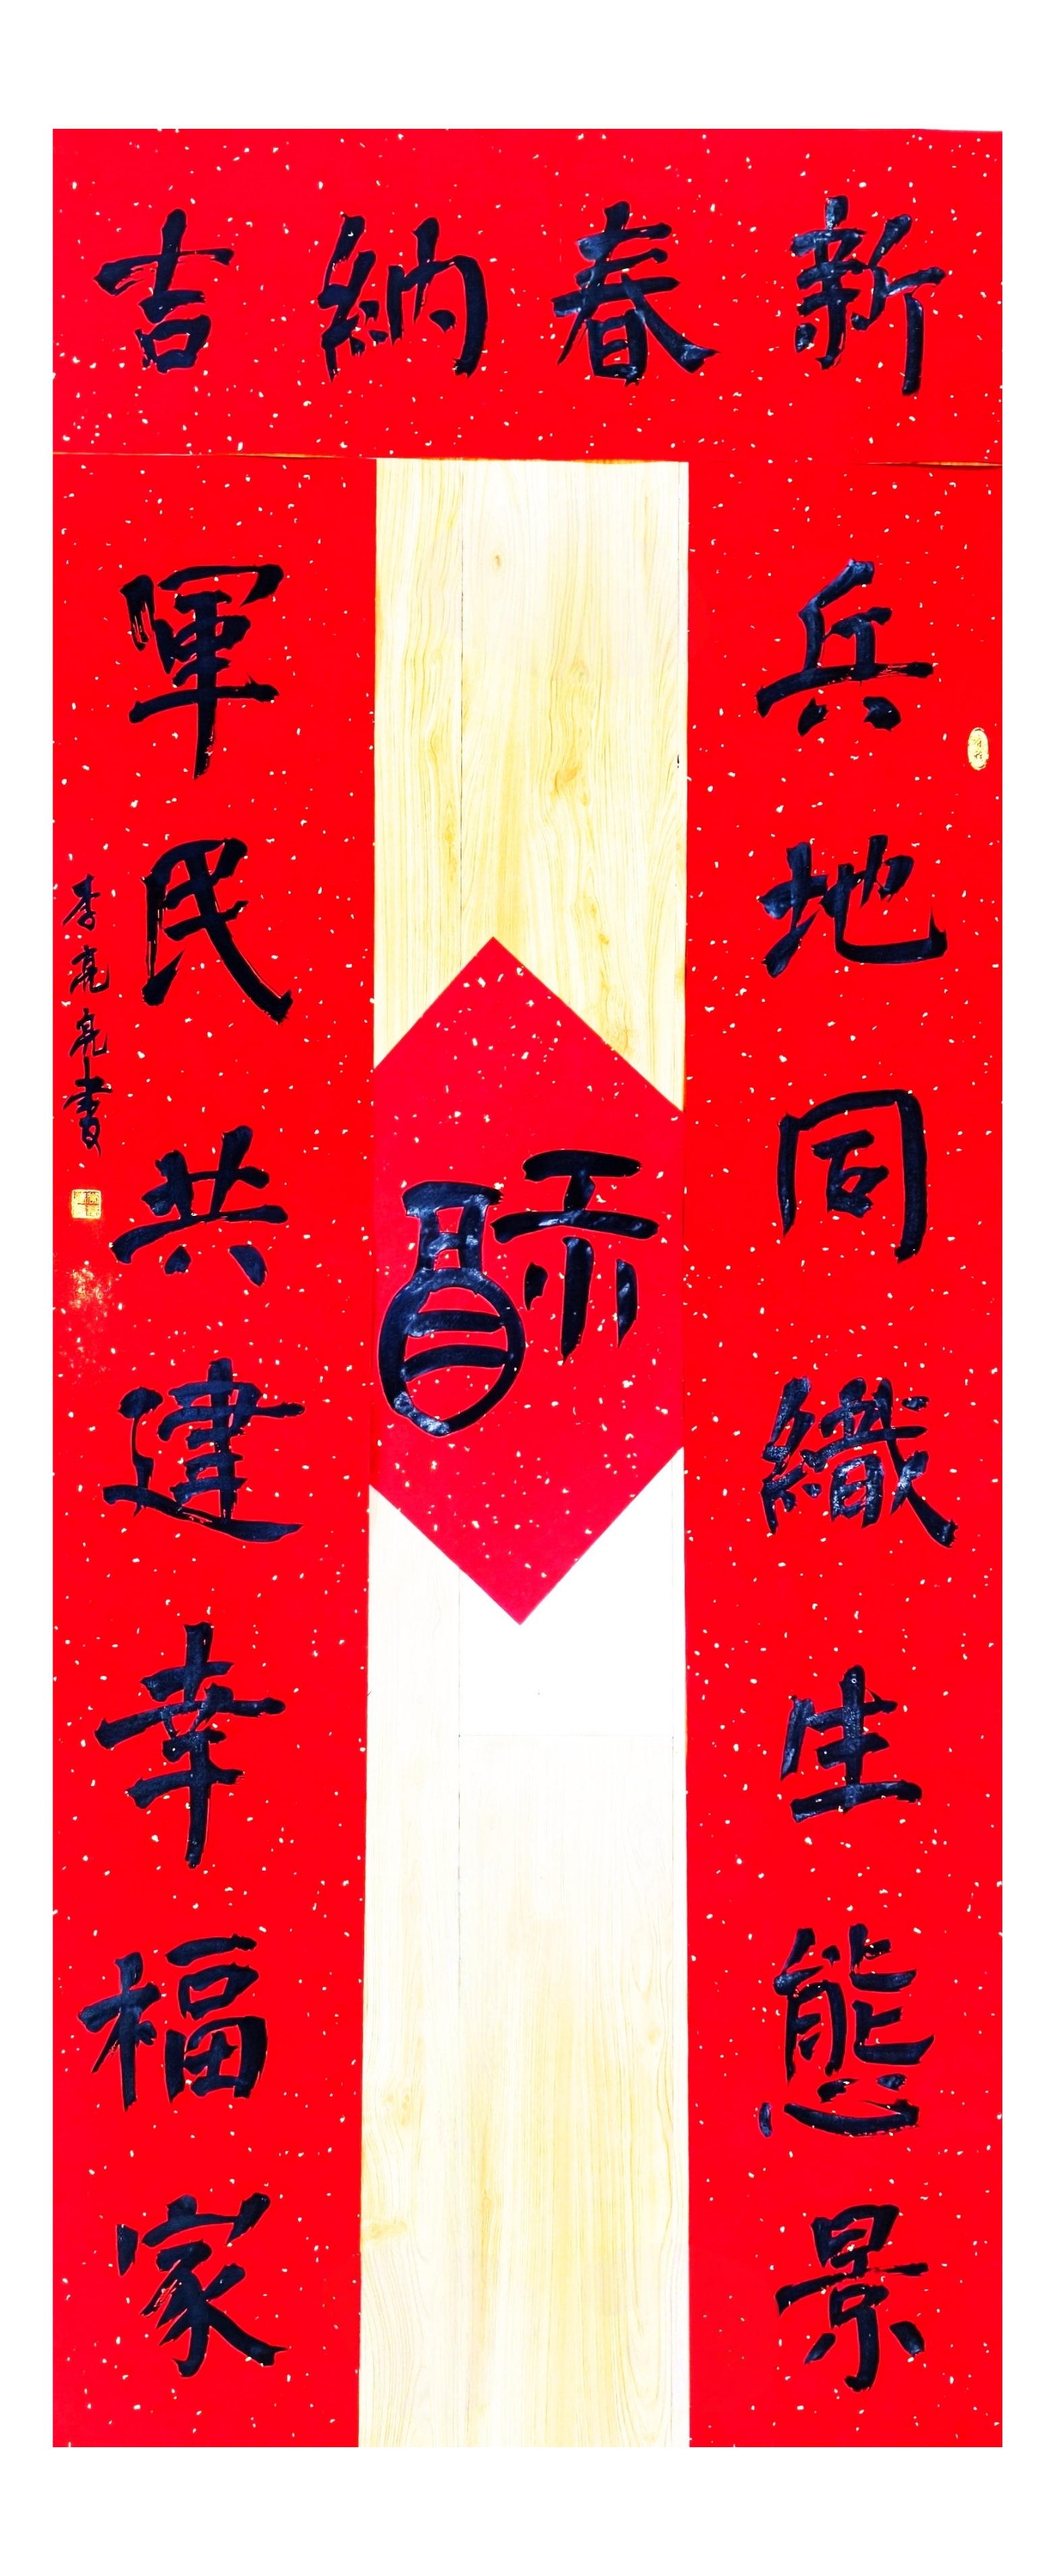 新春納吉
兵地同織生態景
福
軍民共建幸福家
李亮亮書